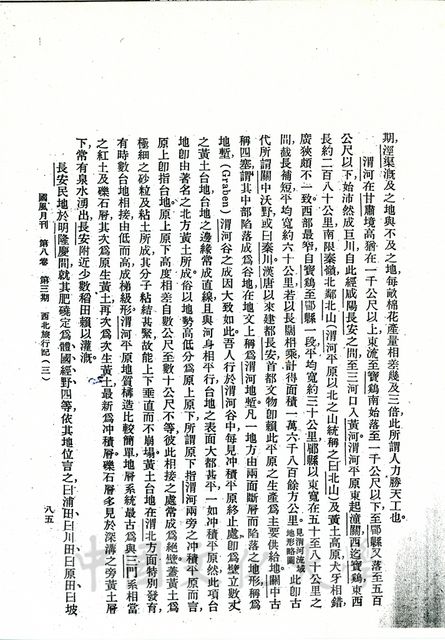 期,涇渠漑及之地與不及之地每畝棉花產量相差幾及三倍此所謂人力勝天工也.
渭河在甘肅境高猶在一千公尺以上東流至寶鷄南始落至一千公尺以下至郿縣又落至五百
公尺以下始沛然成巨川自此經咸陽長安之間至三河口入黃河渭河平原東起潼關西迄寶鷄東西
長約二百八十公里南限秦嶺北鄰北山(渭河平原以北之山統稱之曰北山)及黃土高原犬牙相錯
廣狹頗不一致西部最窄自寶鷄至郿縣一段平均寬約三十公里郿縣以東寬在五十至八十公里之
間截長補短平均寬約六十公里若以長闊相乘計得面積一萬六千八百餘方公里見渭河流域地形略圖此卽古
代所謂關中沃野或曰秦川漢唐以來建都長安首都文物卽賴此平原之生產爲主要供給地關中古
稱四塞謂其中部陷落成爲谷地在地文上稱爲渭河地塹凡一地方由兩面斷層而陷落之地形,稱爲
地塹(Graben)渭河谷之成因大致如此吾人行於渭河谷中,每見沖積平原終止處,卽爲壁立數丈
之黃土台地,台地之邊緣常成直線且與河身相平行台地之表面大都甚平一如沖積平原然此項台
地卽由著名之北方黃土所成.俗以地勢高低分爲原上原下,所謂原下指渭河兩旁之沖積平原而言,
原上卽指台地.原上原下高度相差自數公尺至數十公尺不等彼此相接之處常成爲絕壁蓋黃土爲
極細之砂粒及粘土所成其分子粘結甚緊故能上下垂直而不崩墮黃土台地在渭北方面特別發育,
有時數台地相接由低而高成梯級形渭河平原地質構造比較簡單地層系統最古爲與三門系相當
之紅土及礫石層其次爲原生黃土再次爲次生黃土最新爲冲積層.礫石層多見於深溝之旁黃土層
下常有泉水湧出長安附近少數稻田賴以灌漑
長安民地於明隆慶間就其肥磽定爲體國經野四等依其地位言之曰浦田曰川田曰原田曰坡
國風月刊 第八卷 第三期 西北旅行記(三)
八五